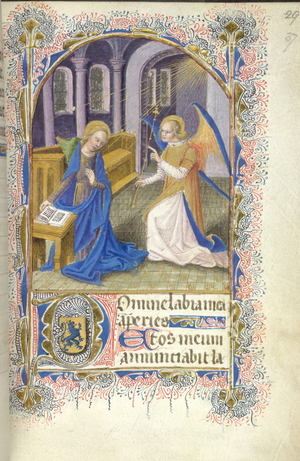 Domine labia mea
aperies
Et os meum
annunciabit la